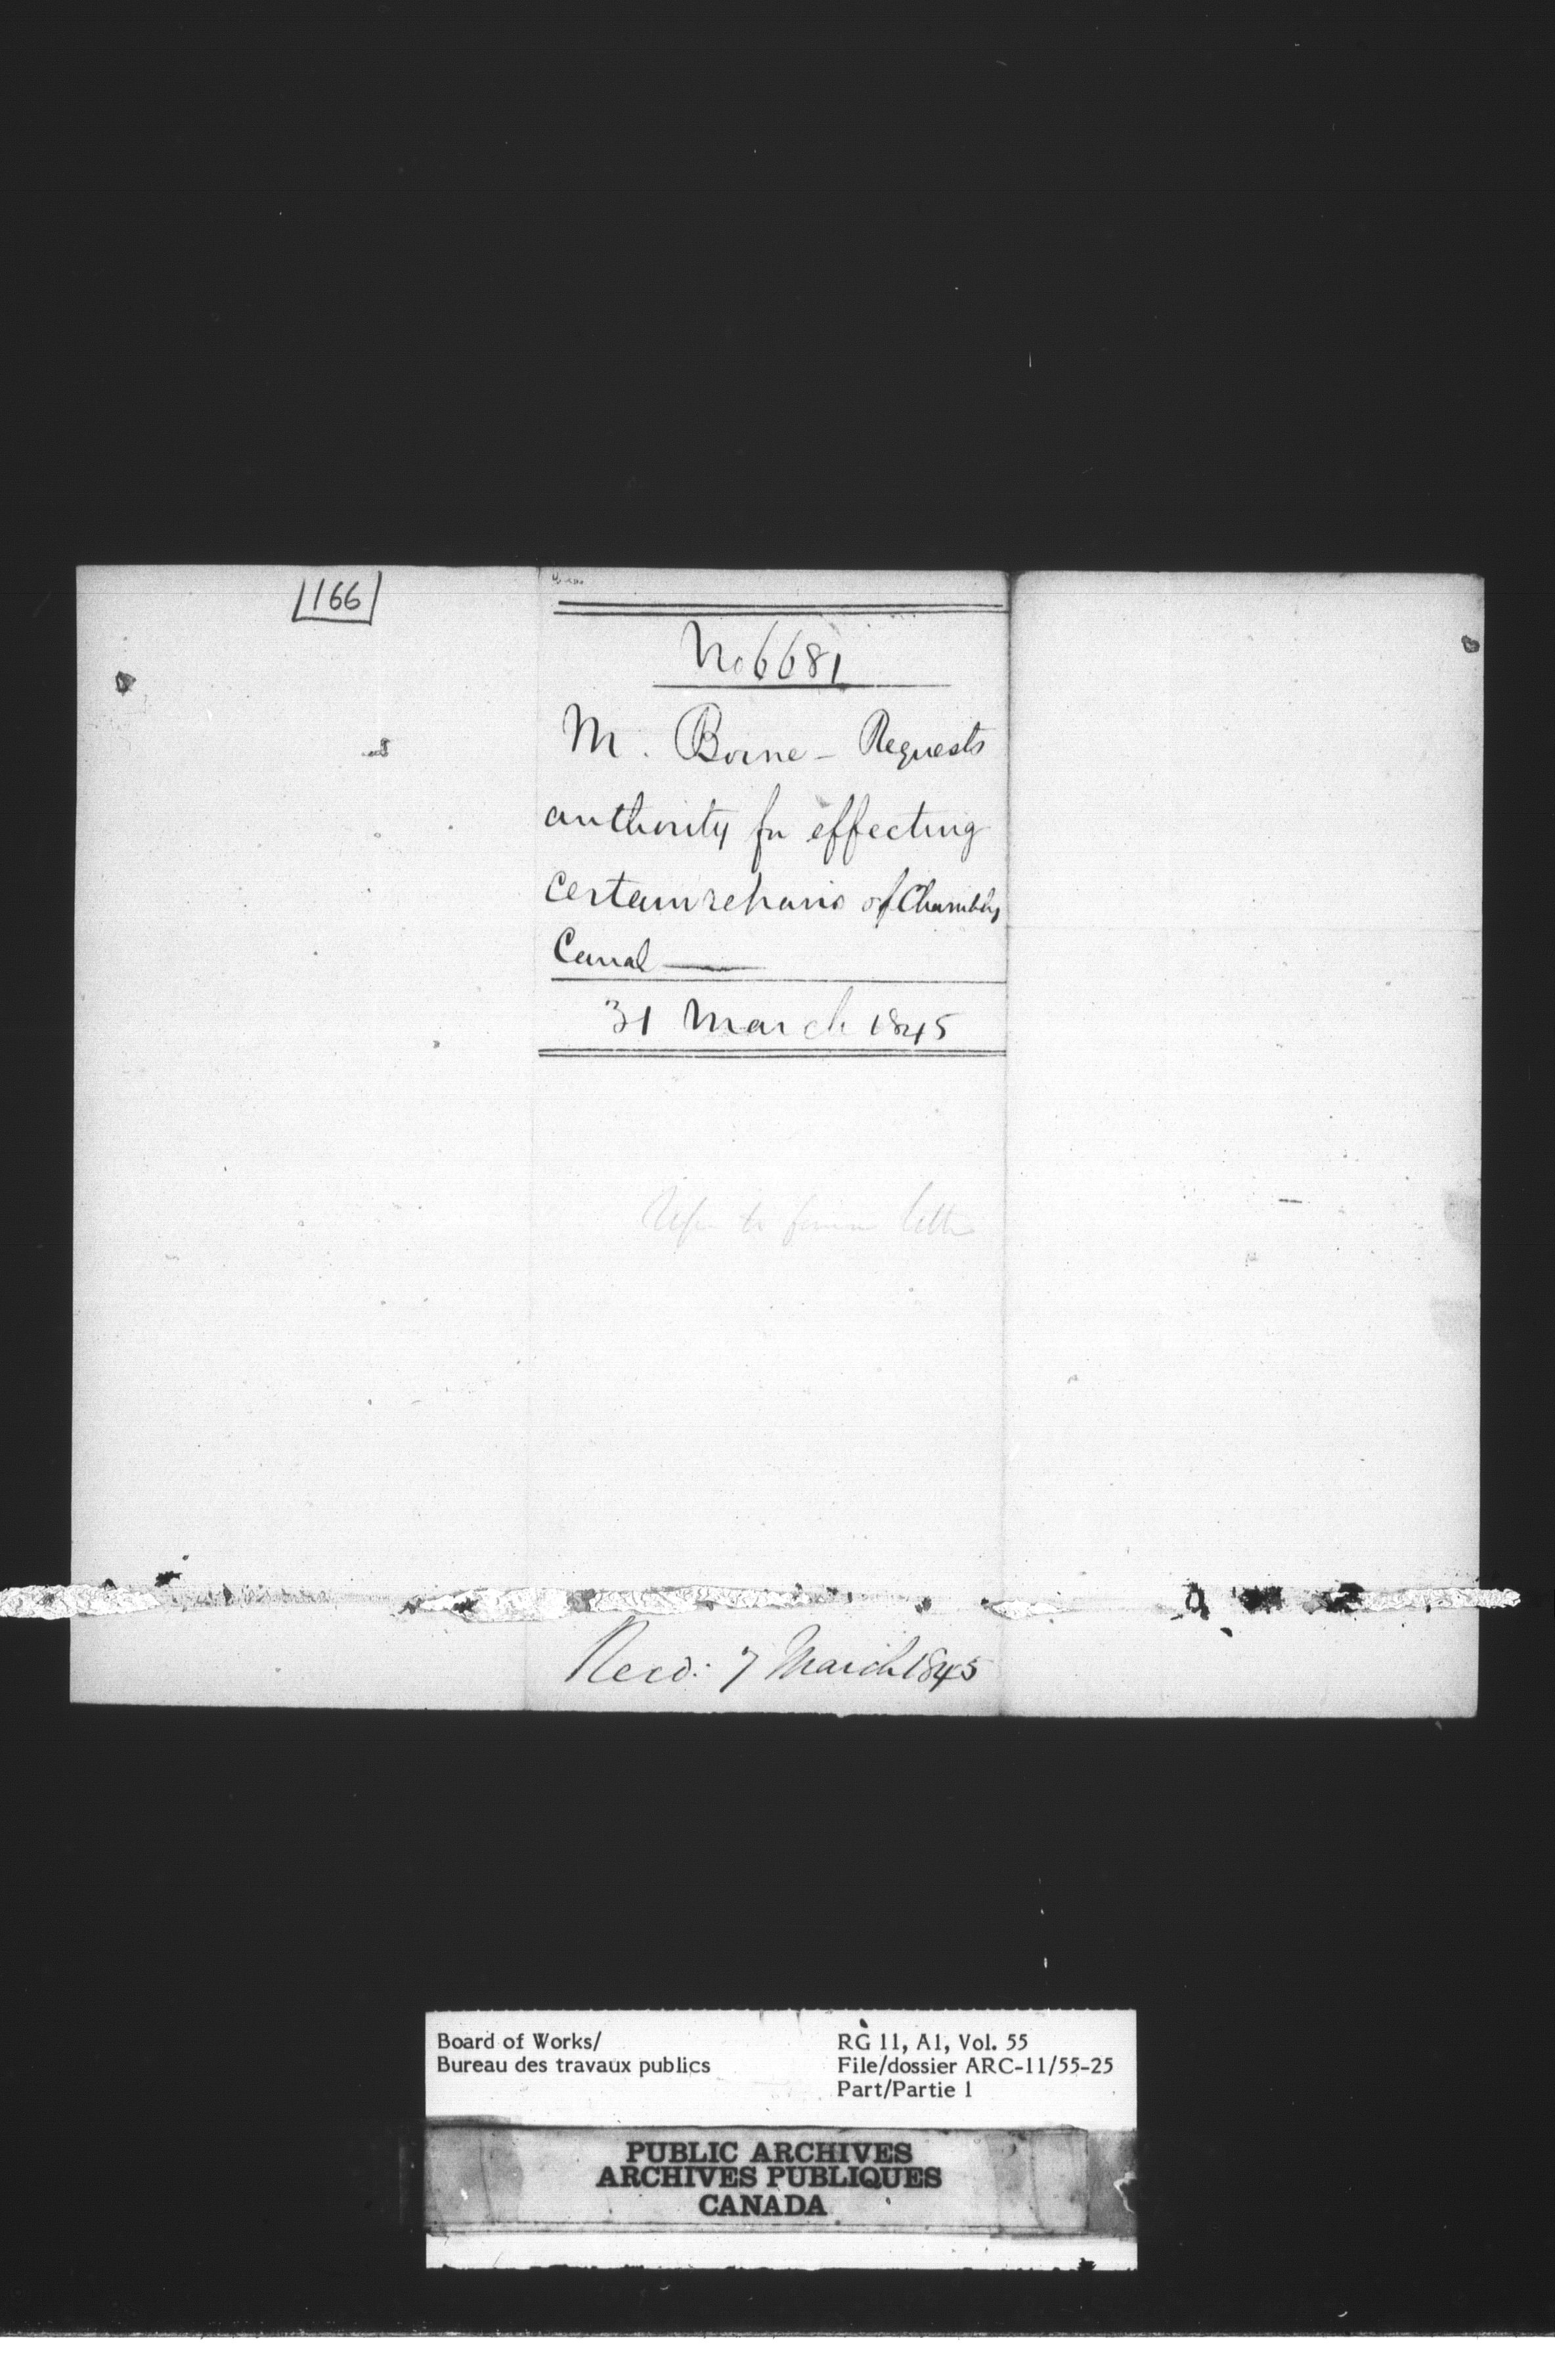 166
No 6681
M. Borne - Requests
authority for effecting
certain repairs of Chambly
Canal
31 March 1845
to former letter
Recd: 7 March 1845
Board of Works/
Bureau des travaux publics
RG 11, A1, Vol. 55
File/dossier ARC-11/55-25
Part/Partie 1
PUBLIC ARCHIVES
ARCHIVES PUBLIQUES
CANADA